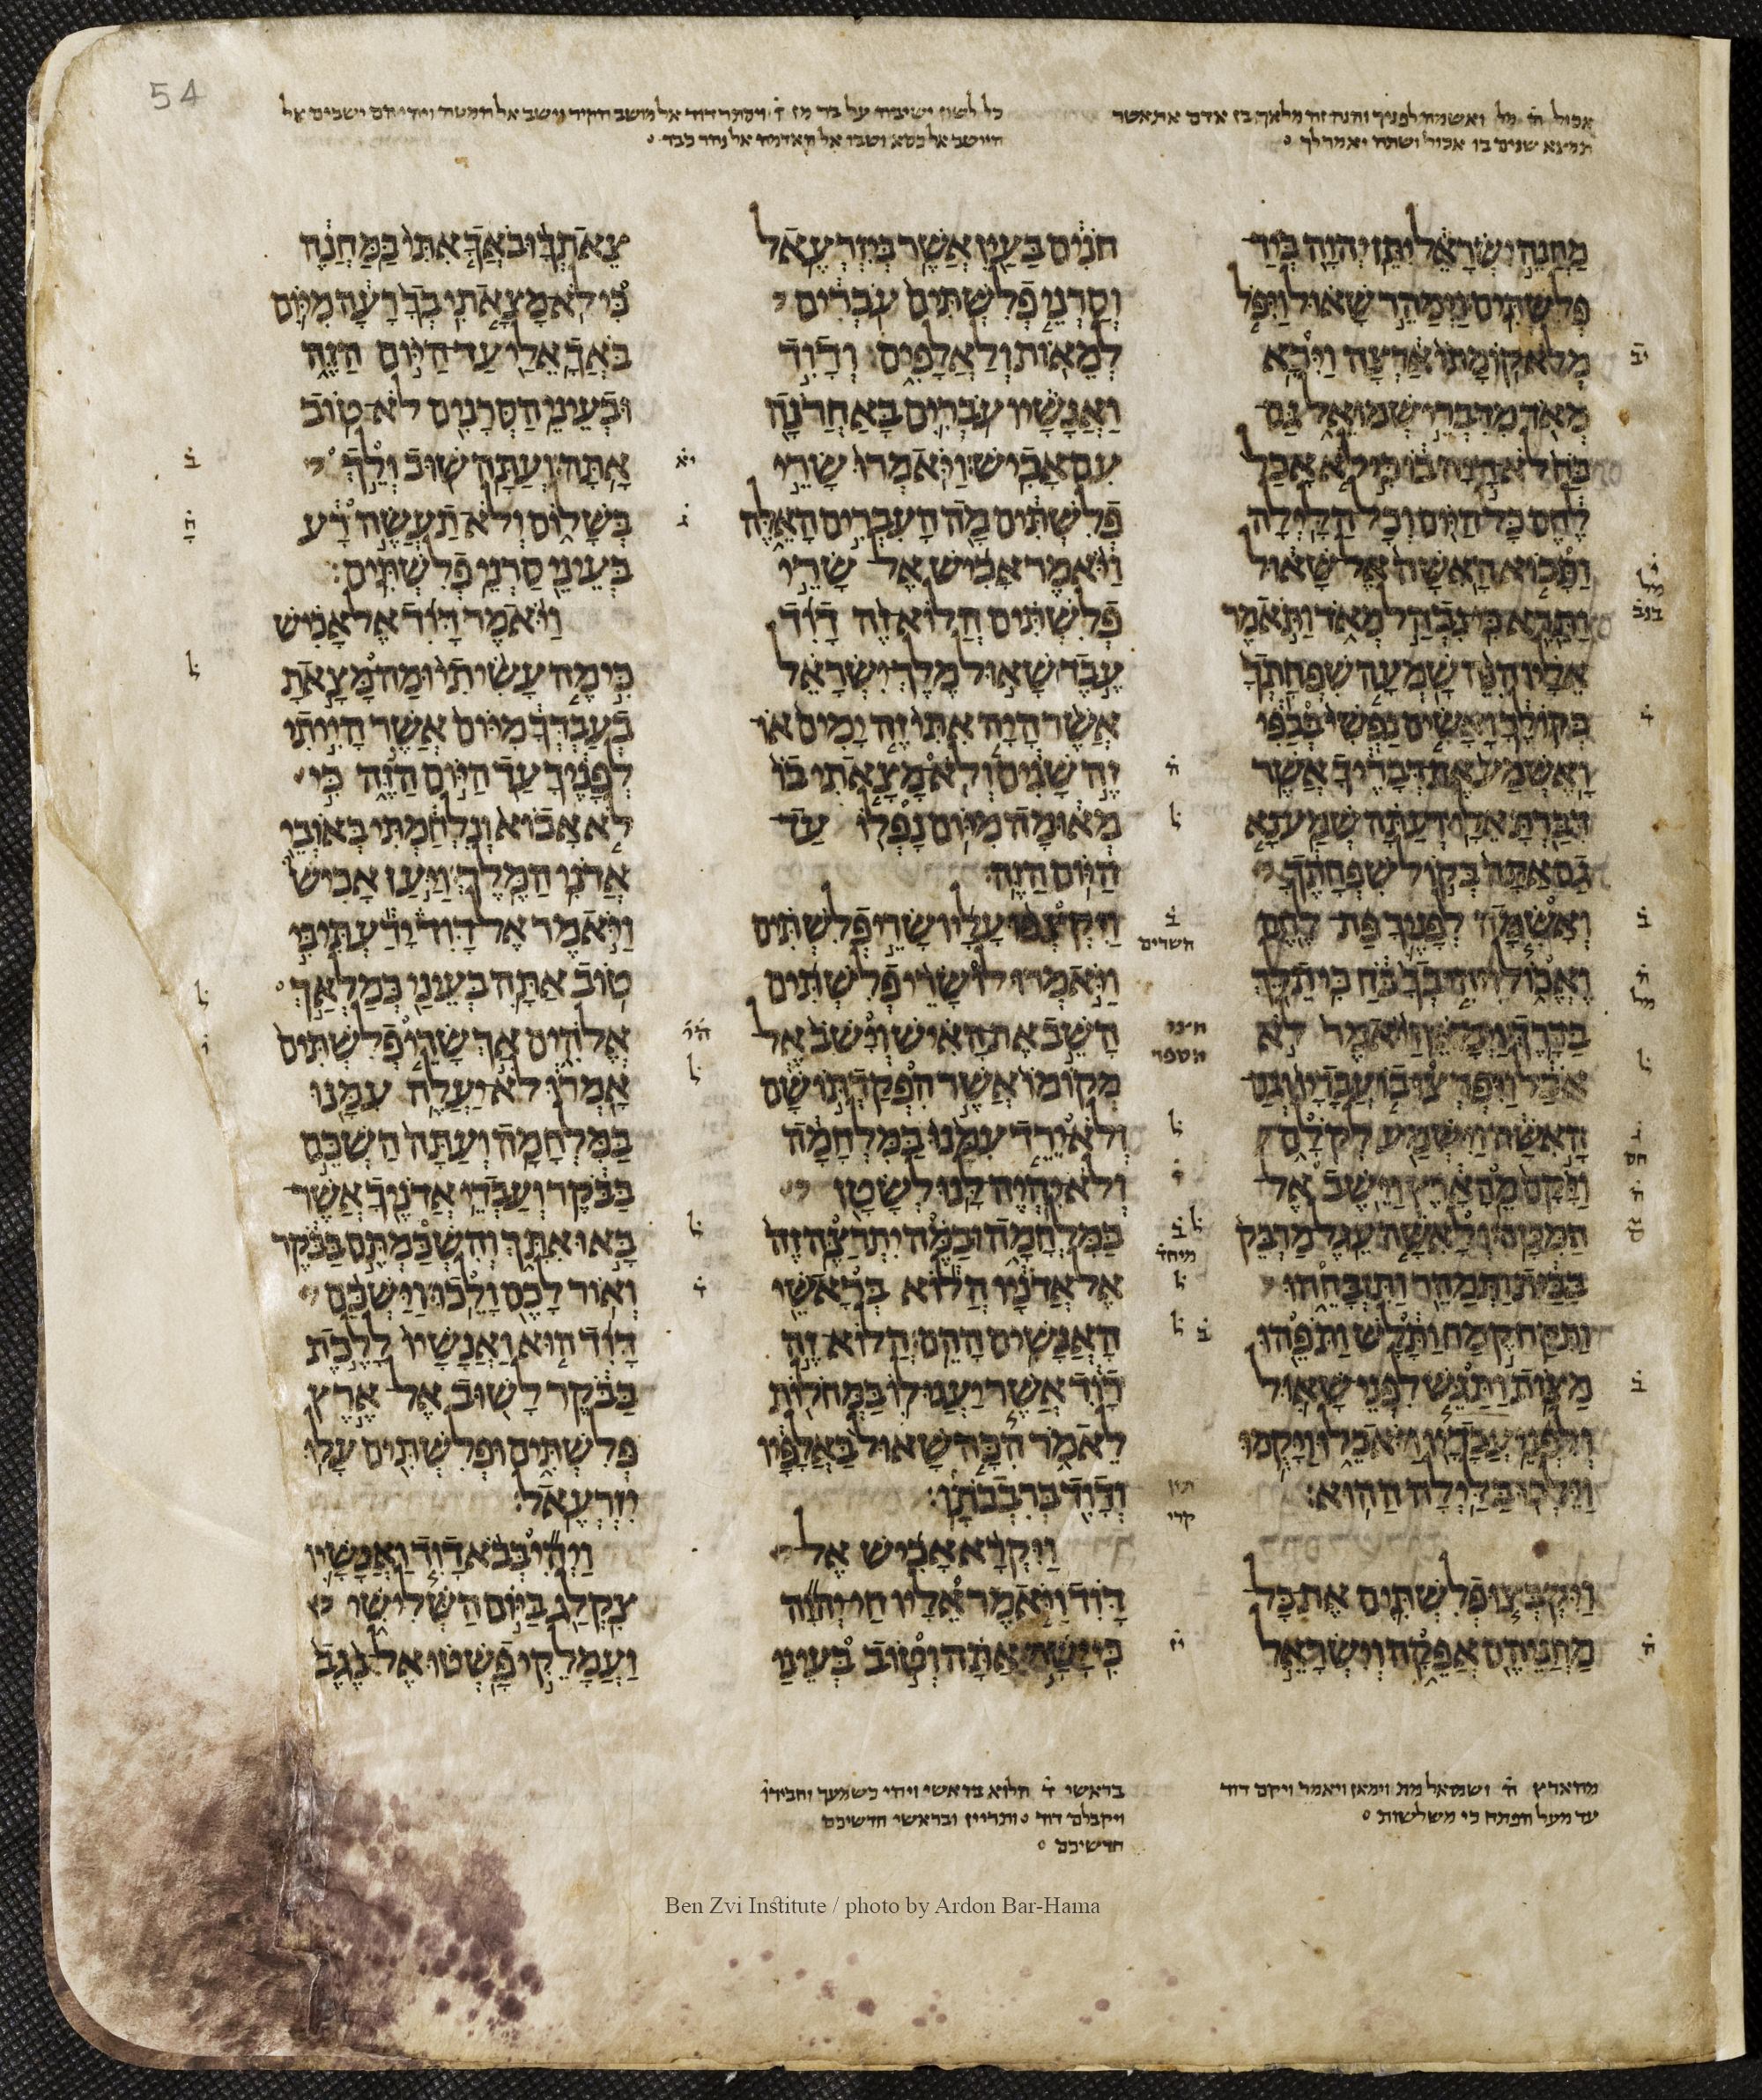 אכול ה̇ מל ואשמה לפניך והנה זה מלאך בן אדם את אשר
תמצא שנים בו אכול ושתה יאמר לך ॰
כל לשון ישיבה על בר מן ויסתר דוד אל מושב הקיר וישב אל המטה ויהי הם ישבים אל
היושב אל כסא ושבו אל האדמה אל נהר כבר ॰
מחנה ישראל יתן יהוה ביד
פלשתים וימהר שאול ויפל
מלא קומתו ארצה וירא
מאד מדברי שמואל גם
כח לא היה בו כי לא אכל
לחם כל היום וכל הלילה
ותבוא האשה אל שאול
ותרא כי נבהל מאד ותאמר
אליו הנה שמעה שפחתך
בקולך ואשים נפשי בכפי
ואשמע את דבריך אשר
דברת אלי ועתה שמע נא
גם אתה בקול שפחתך
ואשמה לפניך פת לחם
ואכול ויהי בך כח כי תלך
בדרך וימאן ויאמר לא
אכל ויפרצו בו עבדיו וגם
האשה וישמע לקלם
ויקם מהארץ וישב אל
המטה ולאשה עגל מרבק
בבית ותמהר ותזבחהו
ותקח קמח ותלש ותפהו
מצות ותגש לפני שאול
ולפני עבדיו ויאכלו ויקמו
וילכו בלילה ההוא׃
ויקבצו פלשתים את כל
מחניהם אפקה וישראל
חנים בעין אשר ביזרעאל
וסרני פלשתים עברים
למאות ולאלפים׃ ודוד
ואנשיו עברים באחרנה
עם אכיש׃ ויאמרו שרי
פלשתים מה העברים האלה
ויאמר אכיש אל שרי
פלשתים הלוא זה דוד
עבד שאול מלך ישראל
אשר היה אתי זה ימים או
זה שנים ולא מצאתי בו
מאומה מיום נפלו עד
היום הזה׃
ויקצפו עליו שרי פלשתים
ויאמרו לו שרי פלשתים
השב את האיש וישב אל
מקומו אשר הפקדתו שם
ולא ירד עמנו במלחמה
ולא יהיה לנו לשטן
במלחמה ובמה יתרצה זה
אל אדניו הלוא בראשי
האנשים ההם׃ הלוא זה
דוד אשר יענו לו במחלות
לאמר הכה שאול באלפו
ודוד ברבבתו׃
ויקרא אכיש אל
דוד ויאמר אליו חי יהוה
כי ישר אתה וטוב בעיני
צאתך ובאך אתי במחנה
כי לא מצאתי בך רעה מיום
באך אלי עד היום הזה
ובעיני הסרנים לא טוב
אתה׃ ועתה שוב ולך
בשלום ולא תעשה רע
בעיני סרני פלשתים׃
ויאמר דוד אל אכיש
כי מה עשיתי ומה מצאת
בעבדך מיום אשר הייתי
לפניך עד היום הזה כי
לא אבוא ונלחמתי באיבי
אדני המלך׃ ויען אכיש
ויאמר אל דוד ידעתי כי
טוב אתה בעיני כמלאך
אלהים אך שרי פלשתים
אמרו לא יעלה עמנו
במלחמה׃ ועתה השכם
בבקר ועבדי אדניך אשר
באו אתך והשכמתם בבקר
ואור לכם ולכו׃ וישכם
דוד הוא ואנשיו ללכת
בבקר לשוב אל ארץ
פלשתים ופלשתים עלו
יזרעאל׃
ויהי בבא דוד ואנשיו
צקלג ביום השלישי
ועמלקי פשטו אל נגב
מהארץ ה̇ ושמואל מת וימאן ויאמר ויקם דוד
עד מעל המפתח כי משלשות ॰
בראשי ד̇ הלוא בראשי ויהי כשמעך
ויקבלם דוד ॰ ובראשי חדשיכם
חדשיכם ॰
54
Ben Zvi Institute / photo by Ardon Bar-Hama